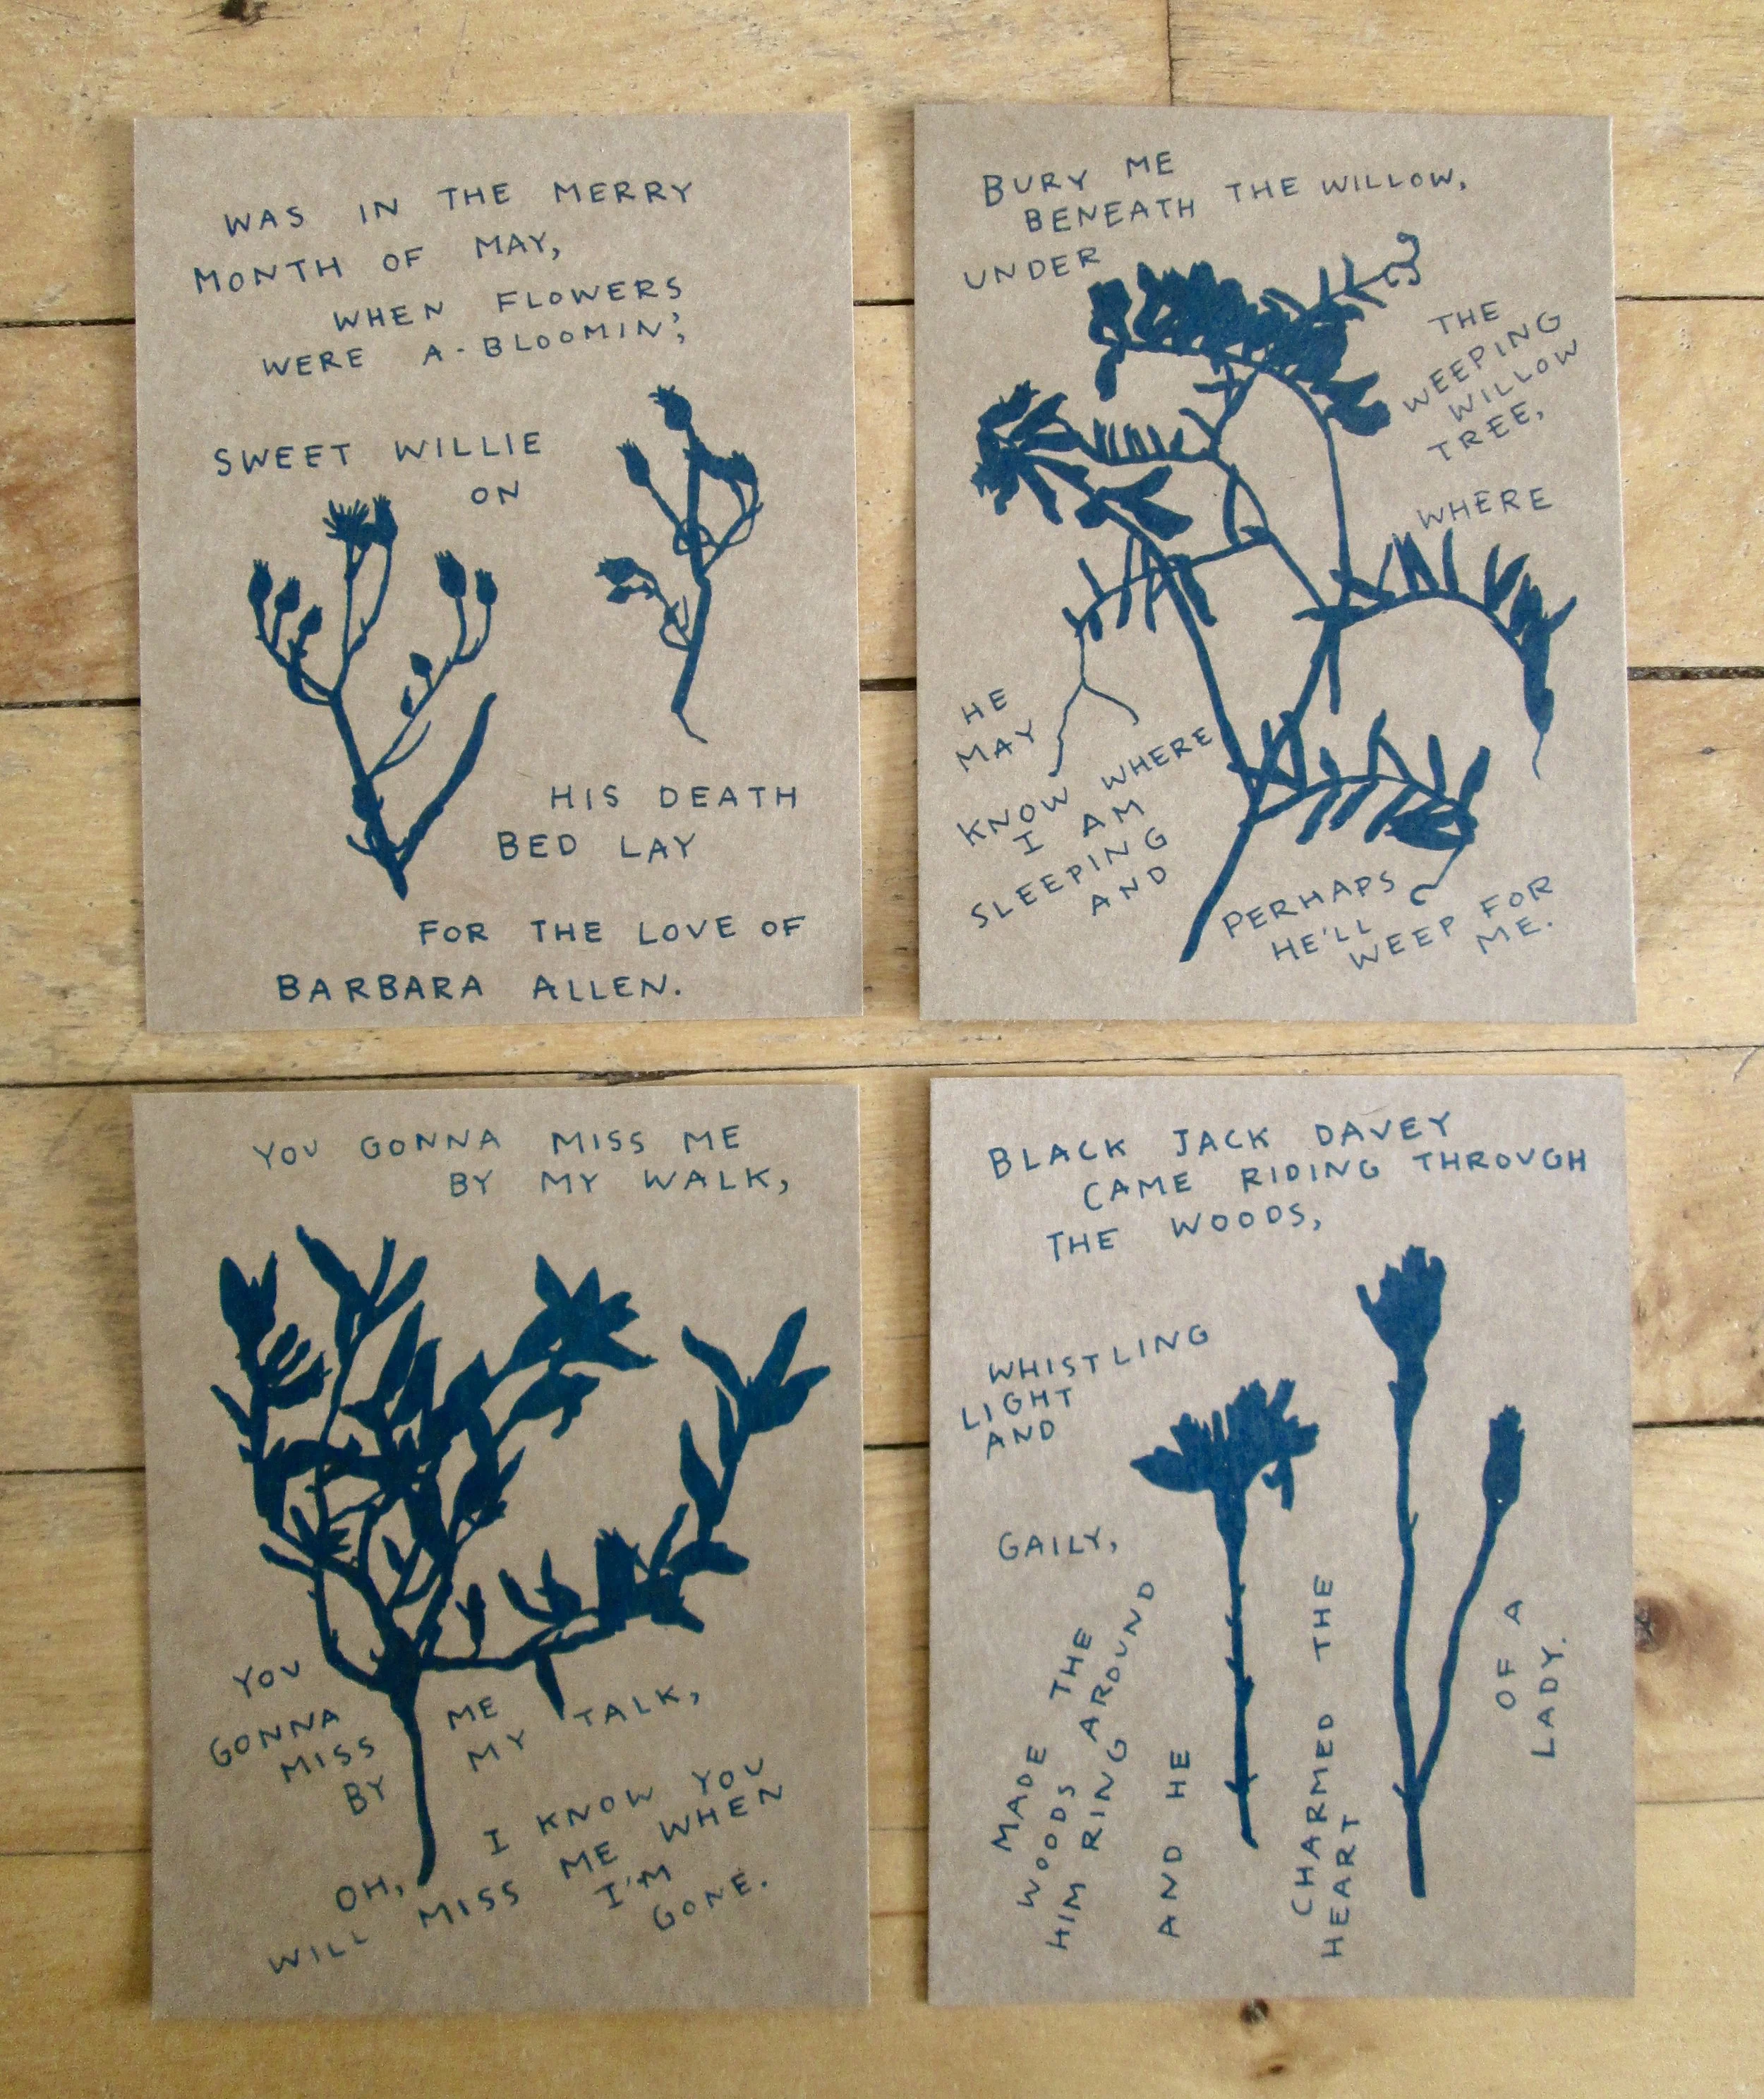 WAS IN THE MERRY
MONTH OF MAY,
WHEN FLOWERS
WERE A-BLOOMIN',
SWEET WILLIE
ON
HIS DEATH
BED LAY
FOR THE LOVE OF
BARBARA ALLEN.
BURY ME
BENEATH THE WILLOW,
UNDER
THE
WEEPING
WILLOW
TREE,
WHERE
HE
MAY
KNOW WHERE
I AM
SLEEPING
AND
PERHAPS
HE'LL
WEEP FOR
ME.
YOU GONNA MISS ME
BY MY WALK,
YOU
GONNA
MISS
BY
ME
MY TALK,
OH, I KNOW YOU
WILL MISS ME WHEN
I'M
GONE.
BLACK JACK DAVEY
CAME RIDING THROUGH
THE WOODS,
WHISTLING
LIGHT
AND
GAILY,
MADE THE
WOODS AROUND
HIM RING
AND HE
CHARMED THE
HEART
OF A
LADY.